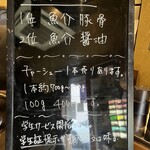 1位 魚介豚骨
2位 魚介醤油
チャーシュー1本売りあります。
1本約700g〜
100g 400
学生サービス開始
学生証提示